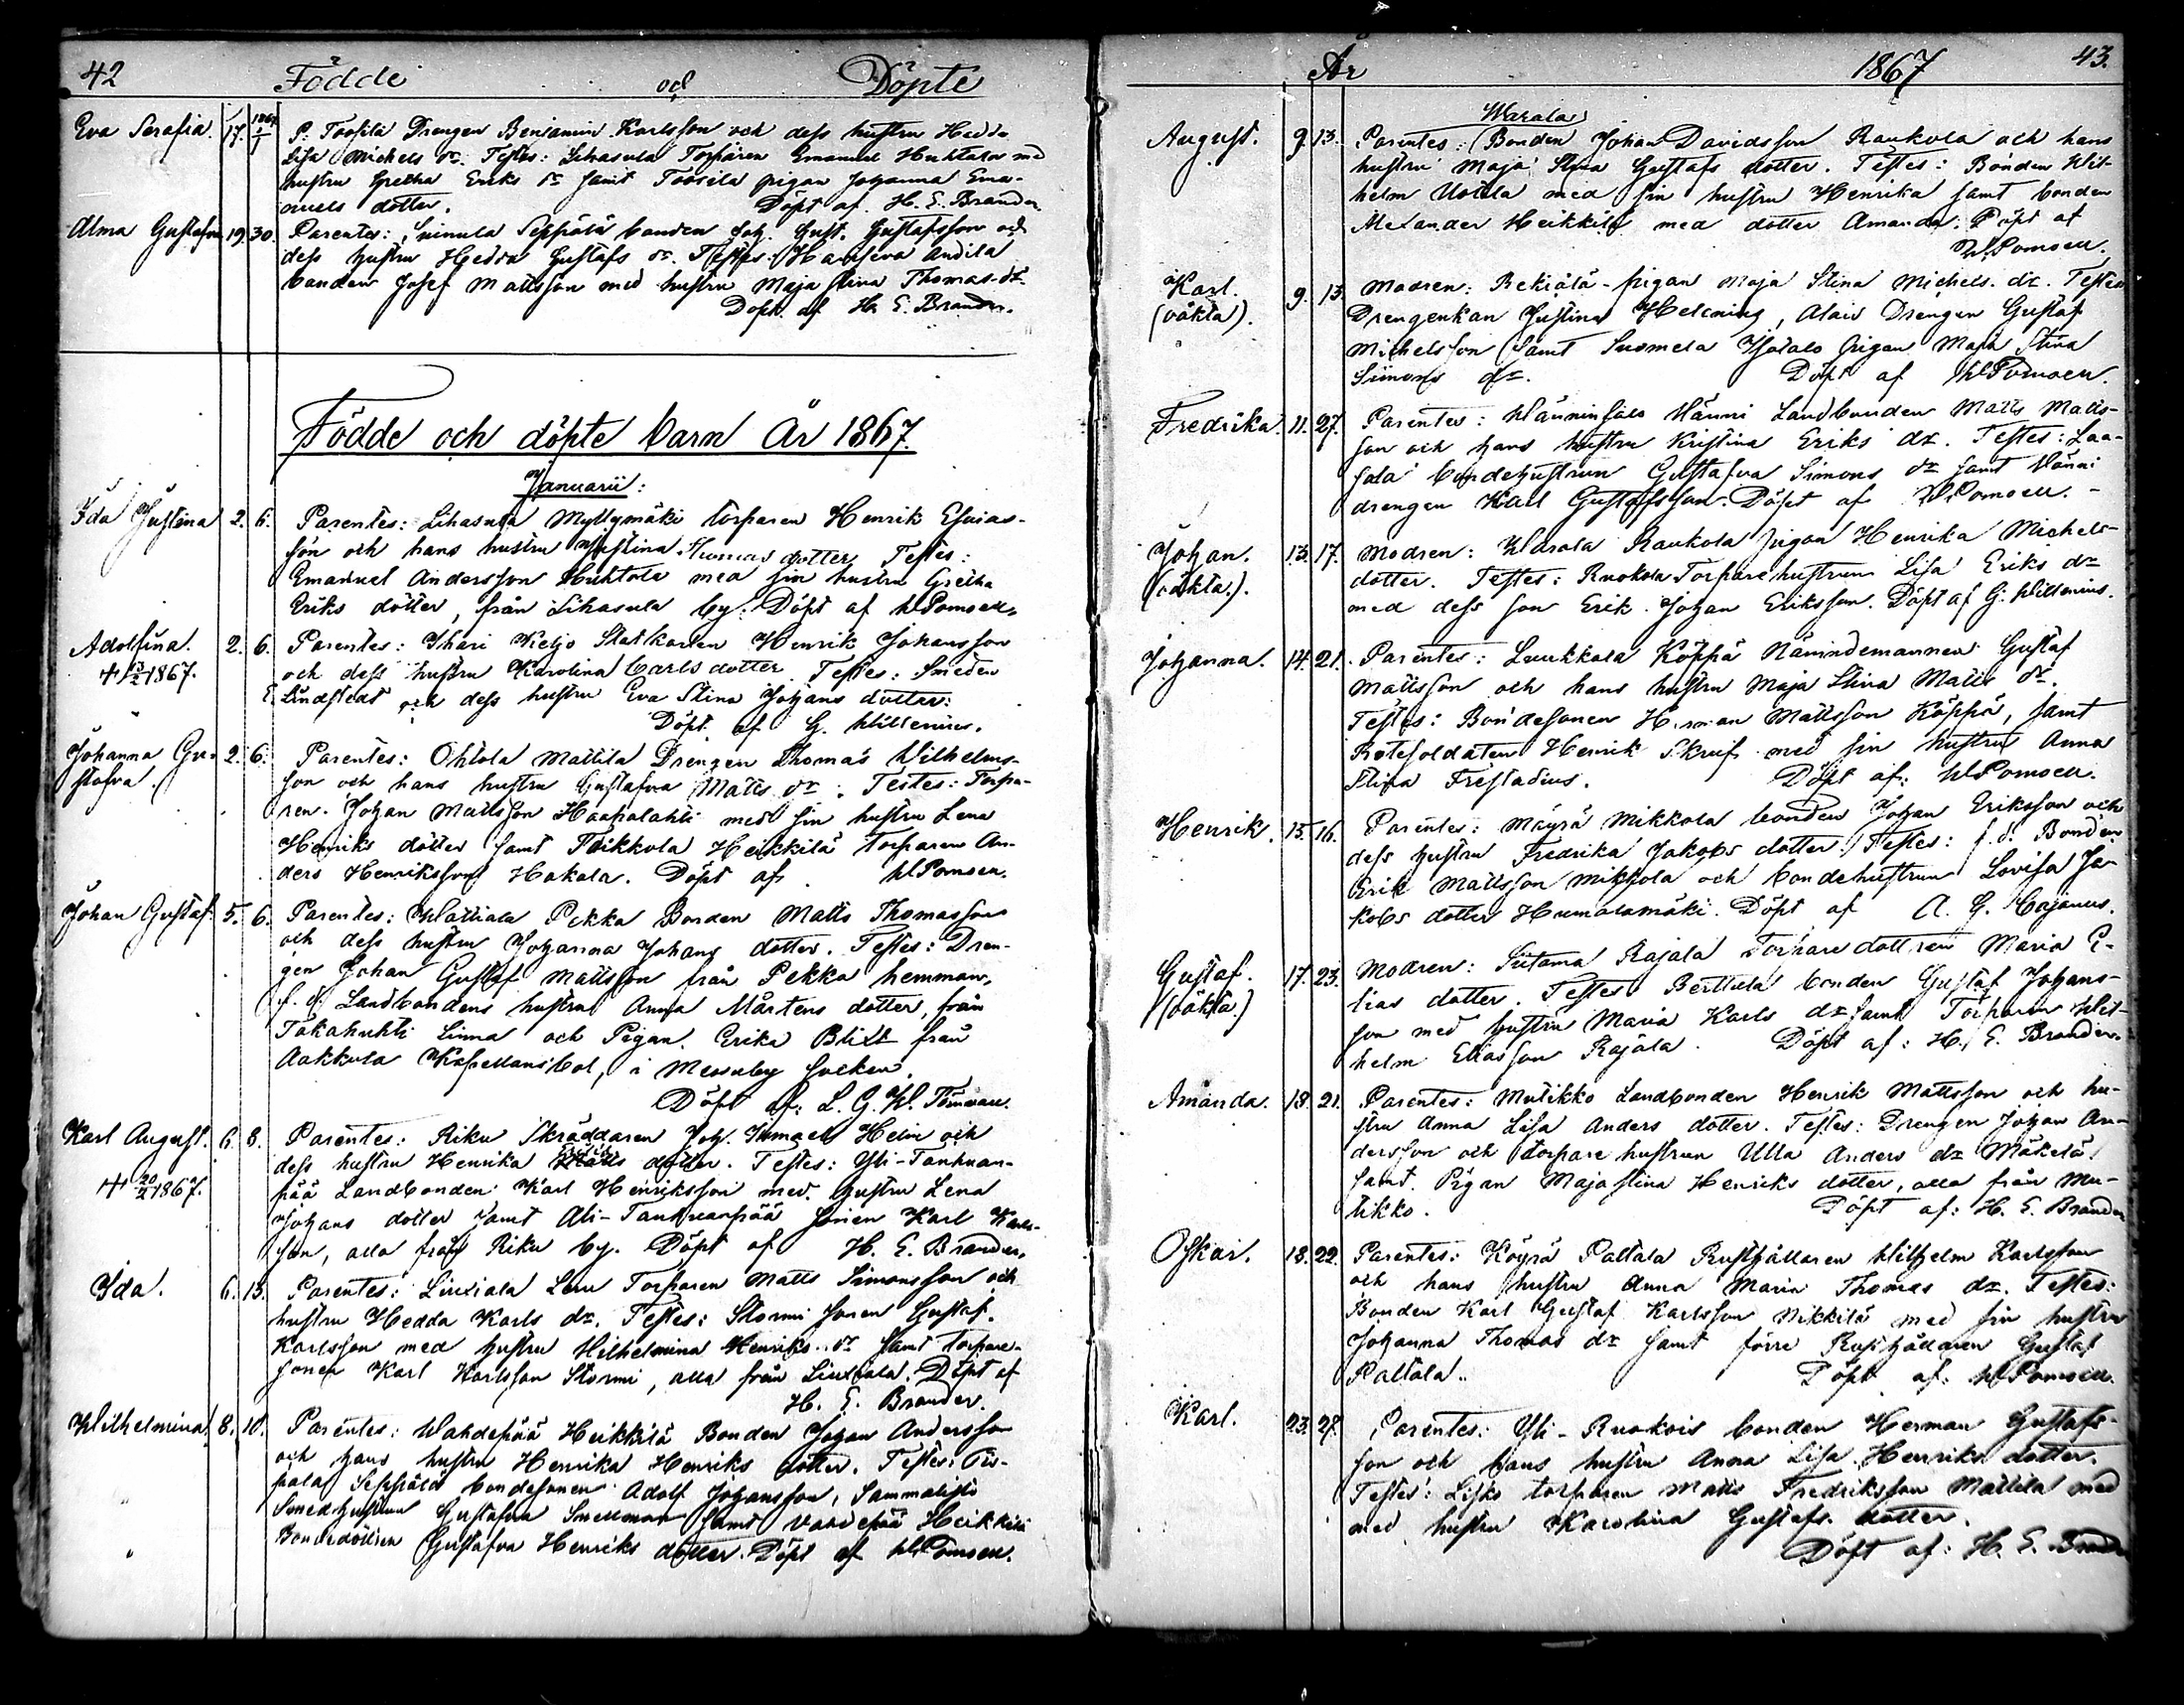 42 Födde och Döpte
Eva Serafia. 17. 1867 2/1 P: Toosila Drengen Benjamin Karlsson och dess hustru Hedda
Lisa Michels dr. Testes: Lihasula Torparen Emanuel Huhtala med
hustru Gretha Eriks dr samt Toosila pigan Johanna Ema-
nuels dotter. Döpt af. H. E. Brander
Alma Gustafva 19. 30. Parentes: Suinula Seppälä bonden Joh. Gust. Gustafsson och
dess hustru Hedda Gustafs dr. Testes: Haviseva Andila
bonden Josef Mattsson med hustru Maja Stina Thomas dr.
Döpt af H. E. Brander.
Födde och döpte barn År 1867.
Januarii:
Ida Justina 2. 6. Parentes: Lihasula Myllymäki torparen Henrik Esaias-
son och hans hustru Justina Thomas dotter Testes:
Emanuel Andersson Huhtala med sin hustru Gretha
Eriks dotter, från Lihasula by. Döpt af W Pomoell.
Adolfina. 2. 6. Parentes: Ihari Keljo Statkarlen Henrik Johansson
+ 13/2 1867. och dess hustru Karolina Carls dotter Testes: Smeden
E. Lindstedt och dess hustru Eva Stina Johans dotter:
Döpt af G. Willenius.
Johanna Gu- 2. 6. Parentes: Ohtola Mattila Drengen Thomas Wilhelms-
stafva. son och hans hustru Gustafva Matts dr. Testes: Torpa-
ren Johan Mattsson Haapalahti med sin hustru Lena
Henriks dotter samt Toikkola Heikkilä torparen An-
ders Henriksson Hakala. Döpt af W Pomoell.
Johan Gustaf. 5. 6. Parentes: Wattiala Pekka Bonden Matts Thomasson
och dess hustru Johanna Johans dotter. Testes: Dren-
gen Johan Gustaf Mattsson från Pekka hemman,
f. d. Landbondens hustru Anna Mårtens dotter, från
Takahuhti Linna och Pigan Erika Blixt från
Aakkula Kapellansbol, i Messuby socken.
Döpt af: L. G. W. Törnvall.
Karl August. 6. 8. Parentes: Riku Skräddaren Joh. Ismael Helin och
+ 20/2 1867. dess hustru Henrika Matts dotter. Testes: Yli-Tanhuan-
pää Landbonden Karl Henriksson med hustru Lena
Johans dotter samt Ali-Tanhuanpää sonen Karl Karls-
son, alla från Riku by. Döpt af H. E. Brander.
Ida. 6. 13. Parentes: Liuxiala Leu Torparen Matts Simonsson och
hustru Hedda Karls dr. Testes: Stormi sonen Gustaf
Karlsson med hustru Wilhelmina Henriks dr samt torpare-
sonen Karl Karlsson Stormi, alla från Liuxiala. Döpt af
H. E. Brander.
Wilhelmina. 8. 10. Parentes: Wahdepää Heikkilä Bonden Johan Andersson
och hans hustru Henrika Henriks dotter. Testes: Tii-
pala Seppälä bondesonen Adolf Johansson, Sammalisto
Smedhustrun Gustafva Snellman samt Vahdepää Heikkilä
Bondedottren Gustafva Henriks dotter. Döpt af W Pomoell.
År 1867 43.
Warala
August. 9. 13. Parentes: Bonden Johan Davidsson Raukola och hans
hustru Maja Stina Gustafs dotter. Testes: Bonden Wil-
helm Uotila med sin hustru Henrika samt bonden
Alexander Heikkilä med dotter Amanda. Döpt af
W Pomoell.
Karl. 9. 13. Modren: Rekiälä-pigan Maja Stina Michels dr. Testes
(oäkta). Drengenkan Justina Helening, Alais Drengen Gustaf
Michelsson samt Suomela Ylötalo pigan Maja Stina
Simons dr. Döpt af W Pomoell.
Fredrika. 11. 27. Parentes: Wänninsalo Wänni Landbonden Matts Matts-
son och hans hustru Kristina Eriks dr. Testes: Laa-
sola bondehustrun Gustafva Simons dr samt Wänni
drengen Karl Gustafsson. Döpt af W Pomoell.
Johan. 13. 17. Modren: Warala Raukola pigan Henrika Michels-
(oäkta.). dotter. Testes: Ruokola Torparehustrun Lisa Eriks dr
med dess son Erik Johan Eriksson. Döpt af G. Willenius.
Johanna. 14. 21. Parentes: Luukkala Köppä Nämndemannen Gustaf
Mattsson och hans hustru Maja Stina Matts dr.
Testes: Bondesonen Herman Mattsson Köppä, samt
Rotesoldaten Henrik Skruf med sin hustru Anna
Stina Frestadius. Döpt af: W Pomoell.
Henrik. 15. 16. Parentes: Mäyrä Mikkola bonden Johan Eriksson och
dess hustru Fredrika Jakobs dotter. Testes: f. d. Bonden
Erik Mattsson Mikkola och bondehustrun Lovisa Ja-
kobs dotter Humalamäki. Döpt af A. G. Cajanus.
Gustaf. 17. 23. Modren: Siitama Rajala Torparedottren Maria E-
(oäkta.) lias dotter. Testes Berttula bonden Gustaf Johans-
son med hustru Maria Karls dr samt Torparen Wil-
helm Eliasson Rajala. Döpt af: H. E. Brander.
Amanda. 18. 21. Parentes: Mutikko Landbonden Henrik Mattsson och hu-
stru Anna Lisa Anders dotter. Testes: Drengen Johan An-
dersson och torparehustrun Ulla Anders dr Mäkelä
samt Pigan Maja Stina Henriks dotter, alla från Mu-
tikko. Döpt af: H. E. Brander
Oskar. 18. 22. Parentes: Köyrä Paltala Rusthållaren Wilhelm Karlsson
och hans hustru Anna Maria Thomas dr. Testes:
Bonden Karl Gustaf Karlsson Nikkilä med sin hustru
Johanna Thomas dr samt förre Rusthållaren Gustaf
Paltala. Döpt af: W Pomoell.
Karl. 23. 27. Parentes: Yli-Ruokois bonden Herman Gustafs-
son och hans hustru Anna Lisa Henriks dotter.
Testes: Lisko torparen Matts Fredriksson Mattila med
med hustru Karolina Gustafs dotter.
Döpt af: H. E. Brander